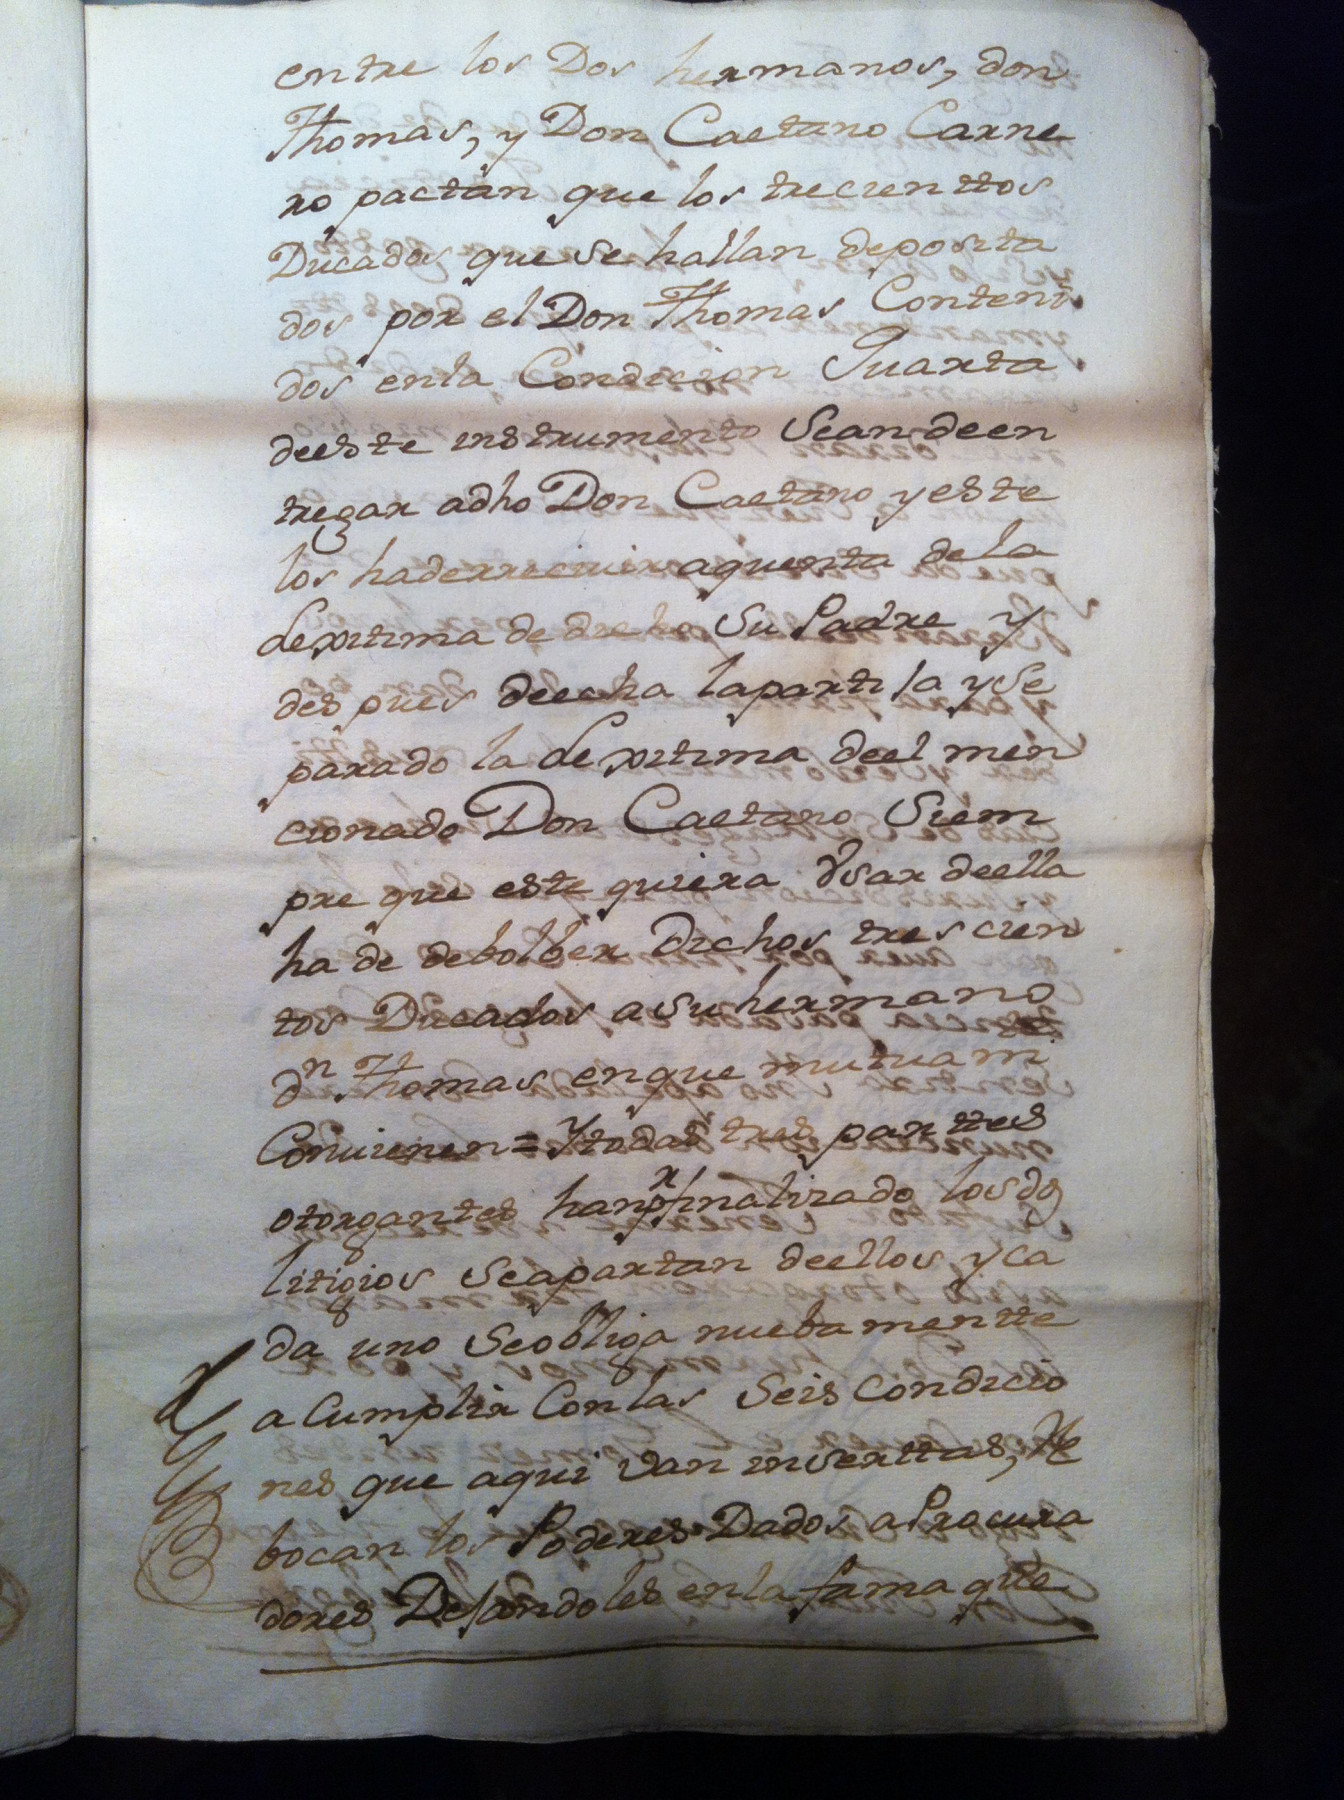 entre los Dos hermanos, don
Thomas, y Don Caetano Carne
ro pactan que los trecienttos
Ducados que se hallan deposita
dos por el Don Thomas Conteni
dos enla Condicion Quarta
deeste instrumento Sean deen
tregar adho Don Caetano y este
los haderrecivir aquenta de la
Lexitima de dicho Su Padre y
despues deecha lapartija y Se
parado la Lexitima deel men
cionado Don Caetano Siem
pre que este quiera Vsar deella
ha de debolber Dichos trescien
tos Ducados a su hermano
dn Thomas enque mutuam
Convienen = Y todas tres parttes
otorgantes han finalizado los dos
litigios Seapartan deellos, y ca
da uno Seobliga nuebamentte
a Cumplir Conlas Seis Condicio
nes que aqui van inserttas, Re
bocan los Poderes Dados a Procura
dores Dejandoles enla fama que